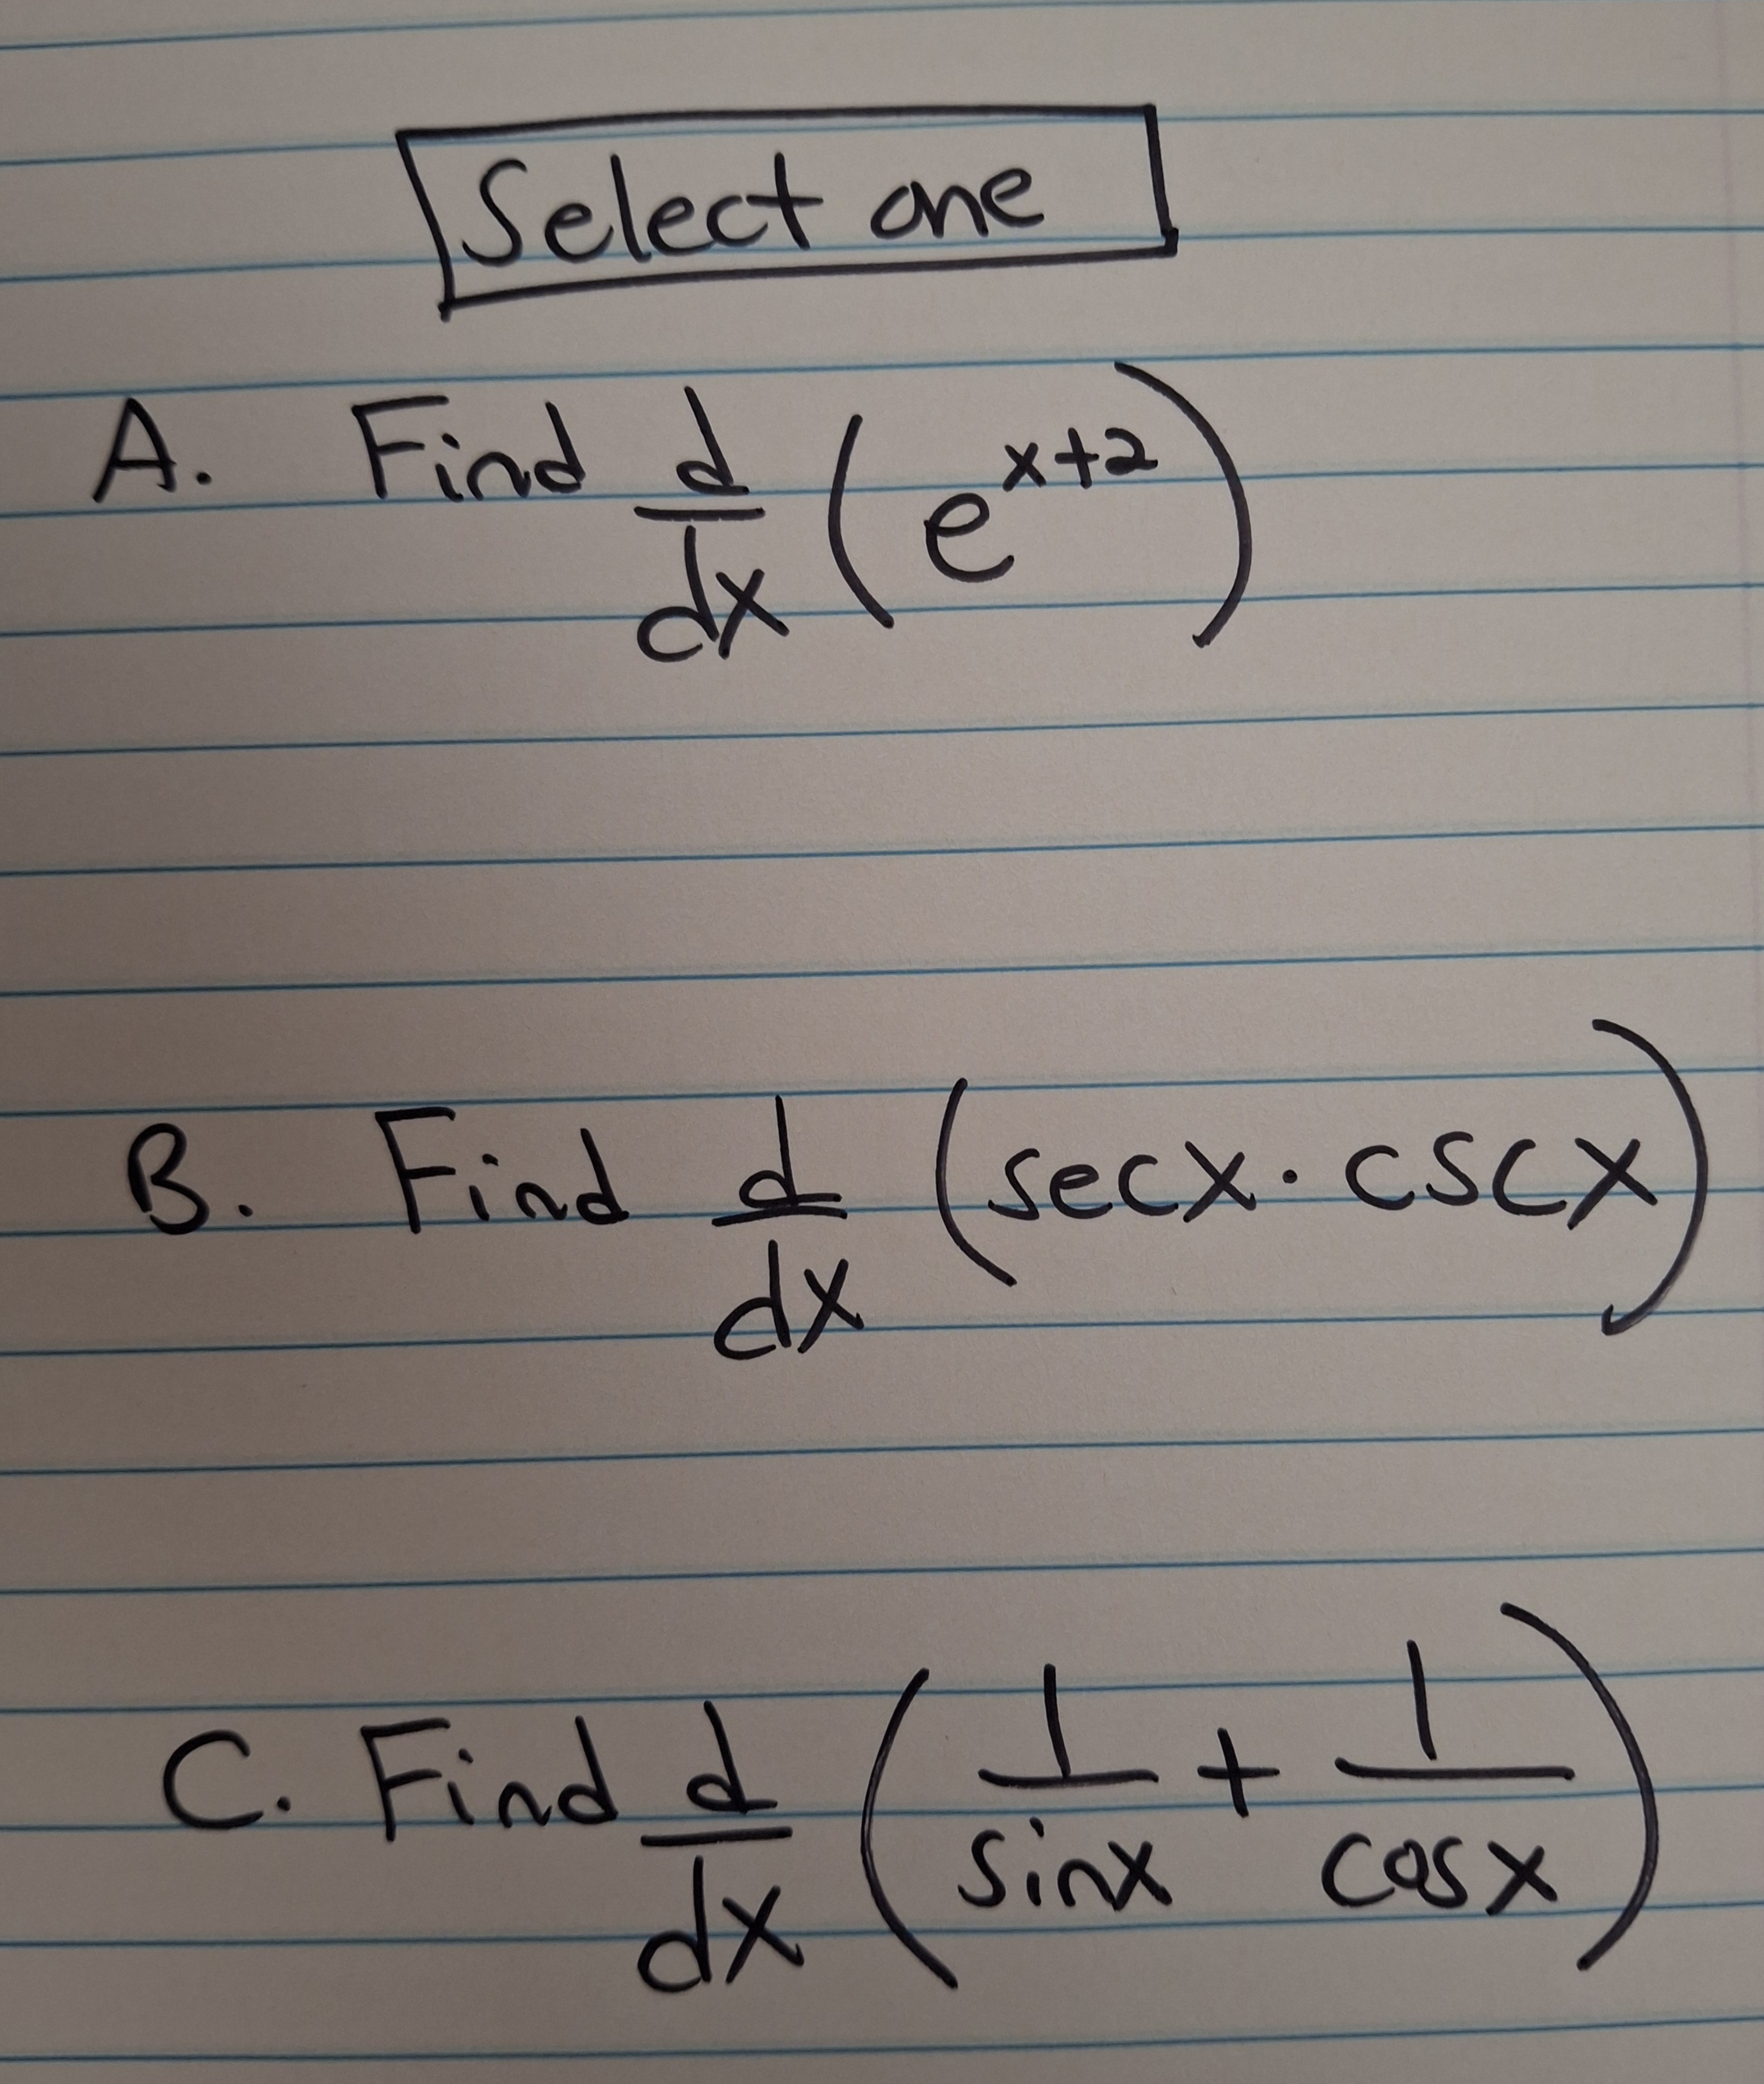 Select one
A. Find d/dx (e^(x+2))
B. Find d/dx (secx · cscx)
C. Find d/dx (1/sinx + 1/cosx)